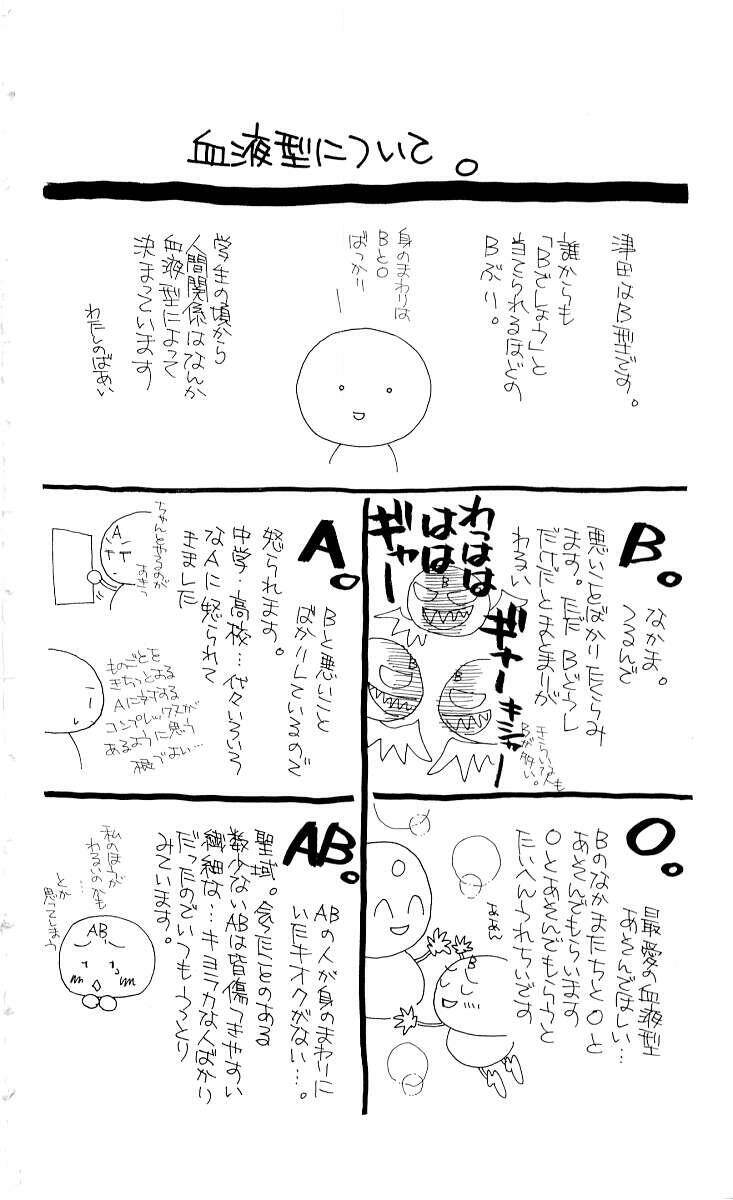 血液型について。
津田はB型です。
誰からも
「Bでしょう」と
当てられるほどの
Bぶり。
身のまわりは
BとO
ばっかり
学生の頃から
人間関係はなんか
血液型によって
決まっています
わたしのばあい
B。
なかま。
つるんで
悪いことばかりたくらみ
ます。ただBどうし
だけだとまとまりが
わるい
わっはは
はは
ギャー
ギャー
キシャー
B
B
B
きらいな人も
Bが多い。
A。
Bと悪いこと
ばかりしているので
怒られます。
中学・高校…代々いろいろ
なAに怒られて
きました
ちゃんとやるのが
あきっ
A
ものごとを
きちっとやる
Aに対する
コンプレックスが
あるように思う
横でよい…
O。
最愛の血液型
あそんでほしい…
Bのなかまたちと Oと
あそんでもらいます
Oとあそんでもらうと
たいへんうれちいです
ああん
O
B
AB。
ABの人が身のまわりに
いたキオクがない…。
聖域。会ったことのある
数少ないABは皆傷つきやすい
繊細な…キヨラカな人ばかり
だったのでいつもうっとり
みています。
私のほうが
わるいのかも
とか
思ってしまう
AB